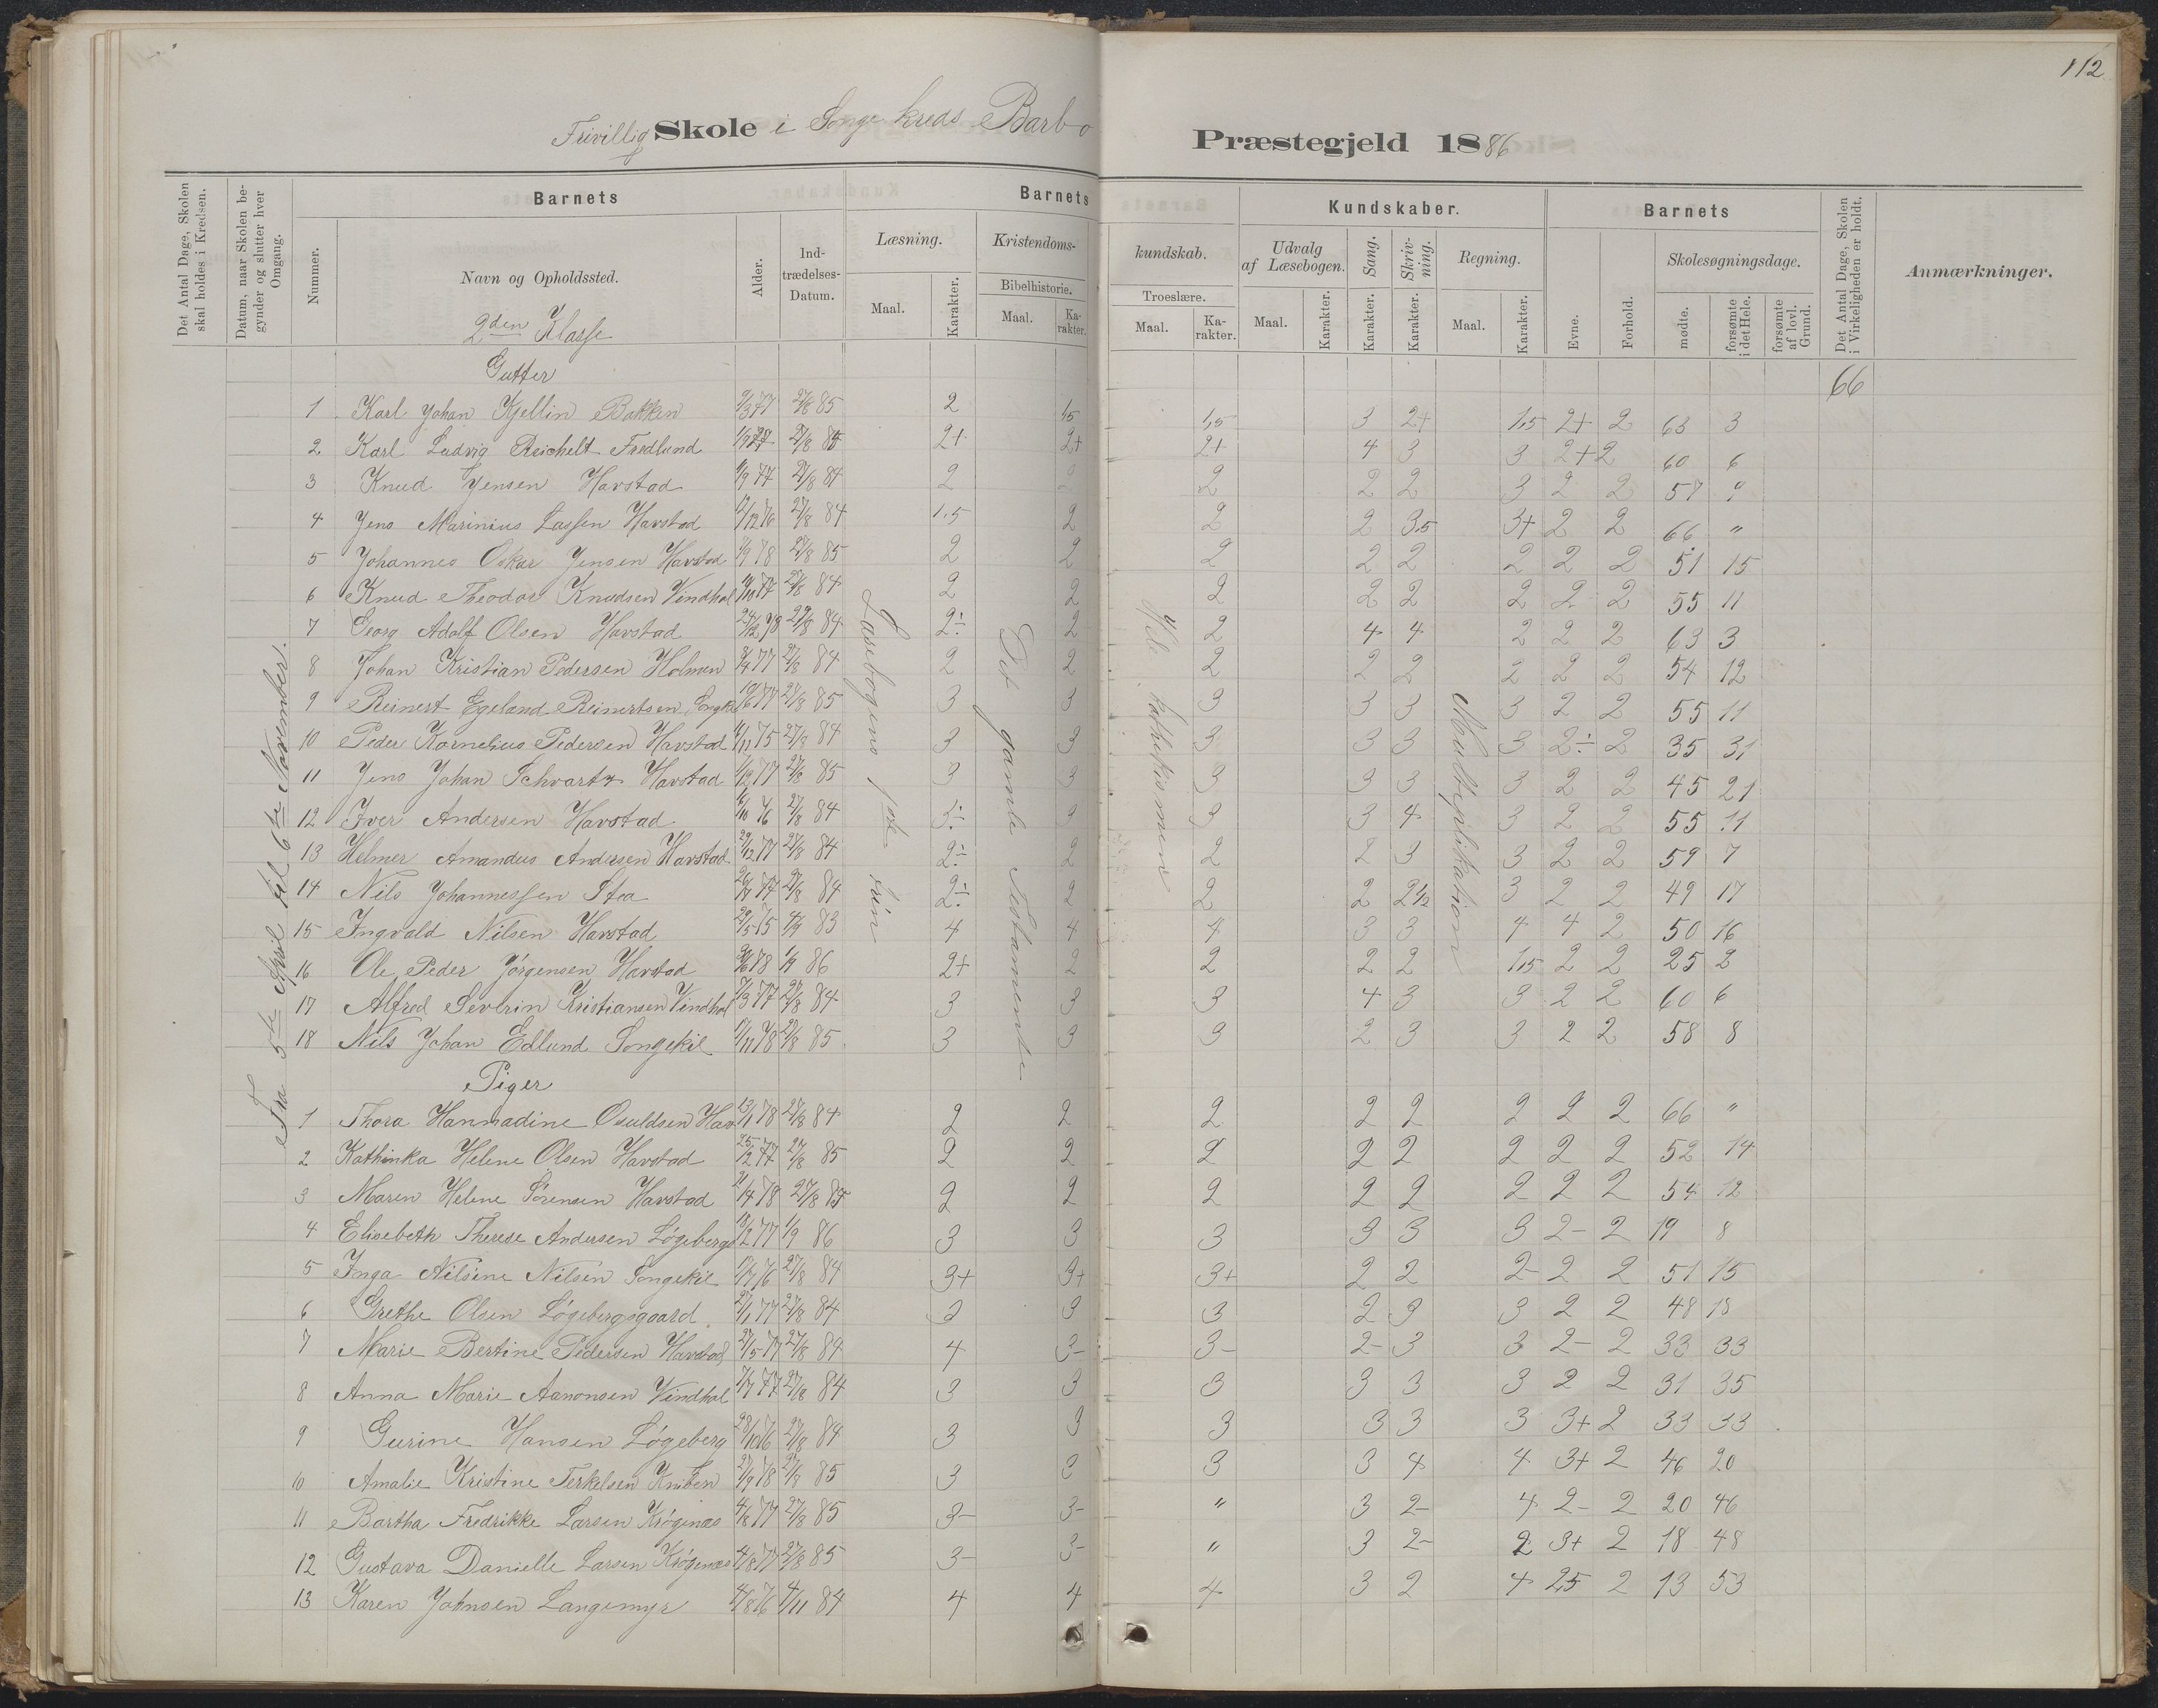 112
Frivillig Skole i Songe Kreds Barbo Præstegjeld 1886
Det Antal Dage, Skolen skal holdes i Kredsen.
Datum, naar Skolen begynder og slutter hver Omgang.
Barnets
Nummer.
Navn og Opholdssted.
Alder.
Indtrædelses-Datum.
Barnets Kundskaber.
Læsning.
Maal.
Karakter.
Kristendomskundskab.
Bibelhistorie.
Maal.
Karakter.
Troeslære.
Maal.
Karakter.
Udvalg af Læsebogen.
Maal.
Karakter.
Sang.
Karakter.
Skrivning.
Karakter.
Regning.
Maal.
Karakter.
Barnets
Evne.
Forhold.
Skolesøgningsdage.
mødte.
forsømte i det Hele.
forsømte af lovl. Grund.
Det Antal Dage, Skolen i Virkeligheden er holdt.
Anmærkninger.
2den Klasse
Gutter
66
Fra 5te April til 6te November.
Læsebogens 1ste Trin
Det gamle Testamente
Hele Kathekismen
Multiplikation
1 Karl Johan Kjellin Bakken 2/3 77 27/8 85 2 1,5 1,5 3 2+ 1,5 2+ 2 63 3
2 Karl Ludvig Reichelt Fredlund 27/8 2+ 2+ 2+ 4 3 3 2+ 2 60 6
3 Knud Jensen Havstad 77 27/8 84 2 2 2 2 2 3 2 2 57 9
4 Jens Marinius Lassen Havstad 12/12 76 27/8 84 1,5 2 2 2 3,5 3+ 2 2 66 "
5 Johannes Oskar Jensen Havstad 1/9 78 27/8 85 2 2 2 2 2 2 2 2 51 15
6 Knud Theodor Knudsen Vindhol 77 27/8 84 2 2 2 2 2 2 2 2 55 11
7 Georg Adolf Olsen Havstad 24/12 78 27/8 84 2÷ 2 2 4 4 2 2 2 63 3
8 Johan Kristian Pedersen Holmen 77 27/8 84 2 2 2 2 2 2 2 2 54 12
9 Reinert Egeland Reinertsen 77 27/8 85 3 3 3 3 3 3 2 2 55 11
10 Peder Kornelius Pedersen Havstad 75 27/8 84 3 3 3 3 3 3 2÷ 2 35 31
11 Jens Johan Schvartz Havstad 1/12 77 27/8 85 3 3 3 3 3 3 2 2 45 21
12 Iver Andersen Havstad 16/10 76 27/8 84 3÷ 3 3 3 4 3 2 2 55 11
13 Helmer Amandus Andersen Havstad 29/12 77 27/8 84 2÷ 2 2 2 3 3 2 2 59 7
14 Nils Johannessen Stea 77 27/8 84 2÷ 2 2 2 2 1/2 3 2 2 49 17
15 Ingvald Nilsen Havstad 29/5 75 83 4 4 4 3 3 4 4 2 50 16
16 Ole Peder Jørgensen Havstad 78 1/9 86 2+ 2 2 2 2 1,5 2 2 25 2
17 Alfred Severin Kristiansen Vindhol 77 27/8 84 3 3 3 4 3 3 2 2 60 6
18 Nils Johan Edlund Songekil 17/11 78 27/8 85 3 3 3 2 3 3 2 2 58 8
Piger
1 Thora Hannadine Osuldsen Hav 13/1 78 27/8 84 2 2 2 2 2 2 2 2 66 "
2 Kathinka Helene Olsen Havstad 25/2 77 27/8 85 2 2 2 2 2 2 2 2 52 14
3 Maren Helene Sörensen Havstad 78 27/8 2 2 2 2 2 2 2 2 54 12
4 Elisebeth Therese Andersen Løgebergs 18/2 77 1/9 86 3 3 3 3 3 3 2- 2 19 8
5 Inga Nilsine Nilsen Songekil 76 27/8 84 3+ 3+ 3+ 2 2 2- 2 2 51 15
6 Grethe Olsen Løgebergsgaard 27/1 77 27/8 84 3 3 3 2 3 3 2 2 48 18
7 Marie Bertine Pedersen Havstad 27/5 77 27/8 84 4 3- 3- 2- 3 3 2- 2 33 33
8 Anna Marie Aanonsen Vindhol 1/7 77 27/8 84 3 3 3 3 3 3 2 2 31 35
9 Gurine Hansen Løgeberg 28/10 76 27/8 84 3 3 3 3 3 3 3+ 2 33 33
10 Amalie Kristine Terkelsen Kniben 27/9 78 27/8 85 3 3 3 3 4 4 3+ 2 46 20
11 Bartha Fredrikke Larsen Krøgenæs 4/8 77 27/8 85 3- 3- " 3 2- 4 2- 2 20 46
12 Gustava Danielle Larsen Krøgenæs 4/8 77 27/8 85 3- 3- " 3 2- 2 3+ 2 18 48
13 Karen Johnsen Langemyr 4/8 76 4/11 84 4 4 4 3 2 4 2,5 2 13 53